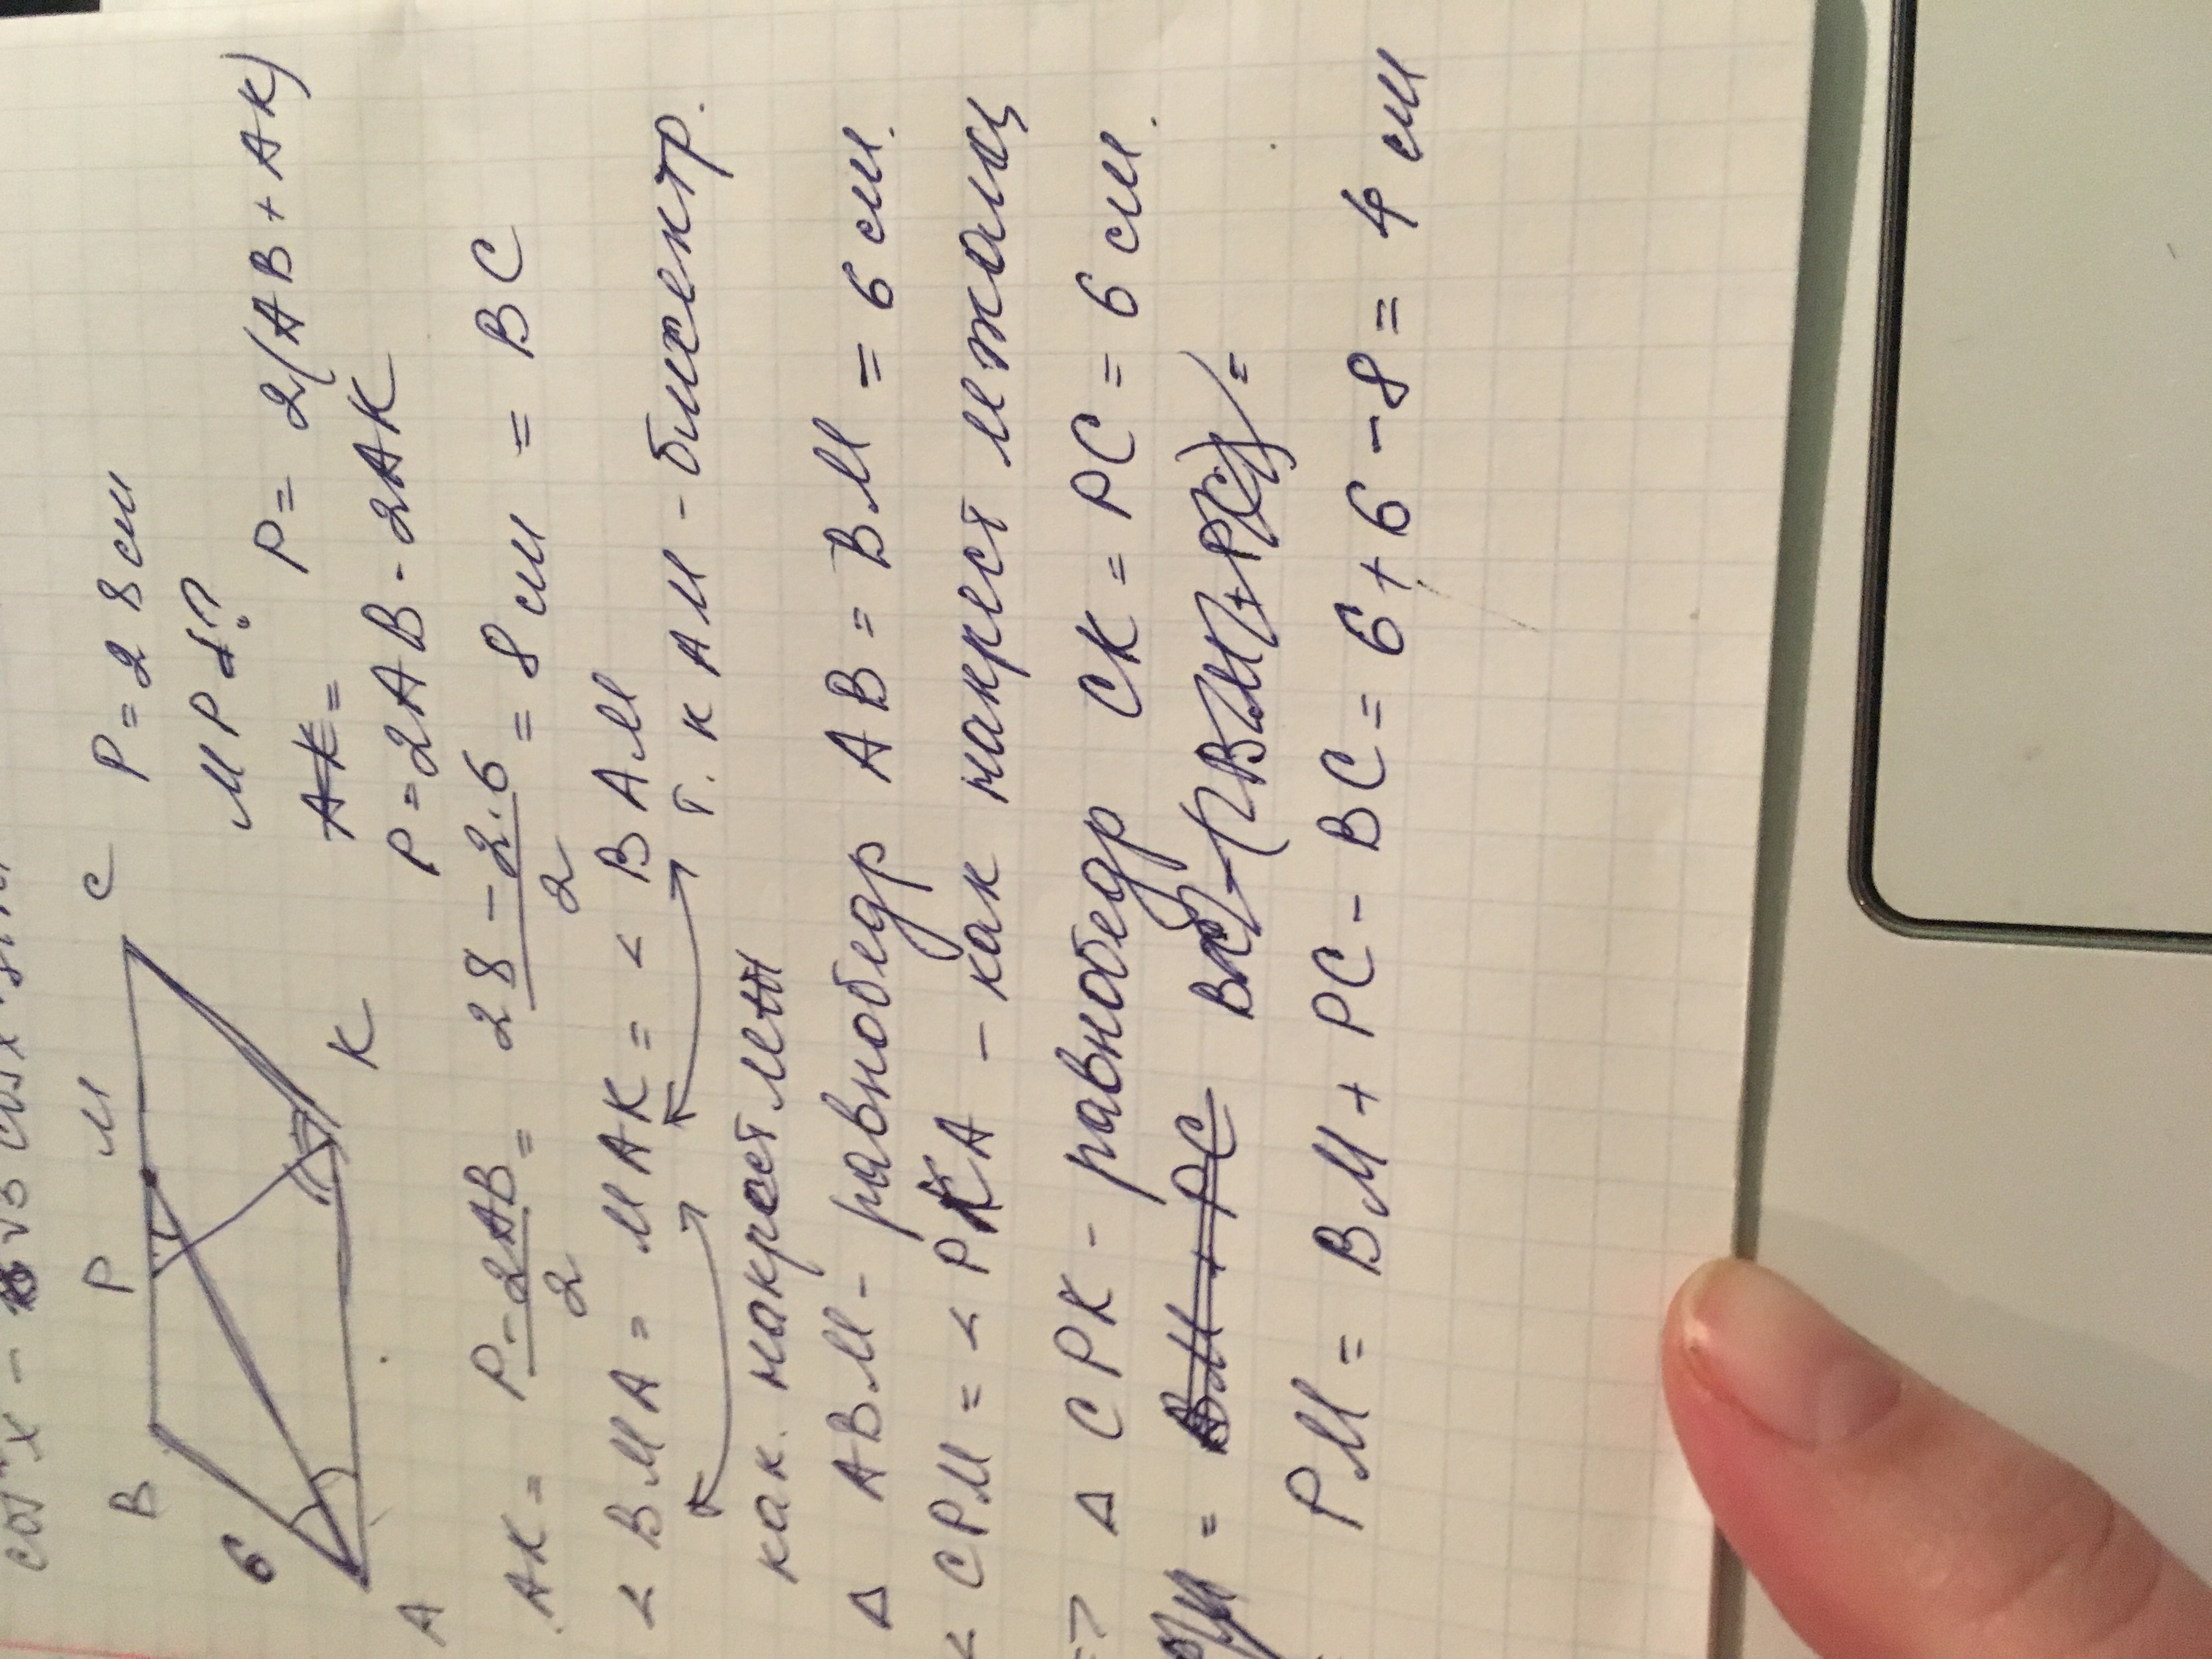 B P M C
6
A K
P = 28 см
MP - ?
P = 2(AB + AK)
AK =
P = 2AB - 2AK
AK = P - 2AB / 2 = 28 - 2·6 / 2 = 8 см = BC
< BMA = MAK = < BAM
т. к AM - биссектр.
как. накрест леж
Δ ABM - равнобедр AB = BM = 6 см.
< CPM = < PKA - как накрест лежащ
=> Δ CPK - равнобедр CK = PC = 6 см.
= BM + PC BC - (BM + PC) =
PM = BM + PC - BC = 6 + 6 - 8 = 4 см